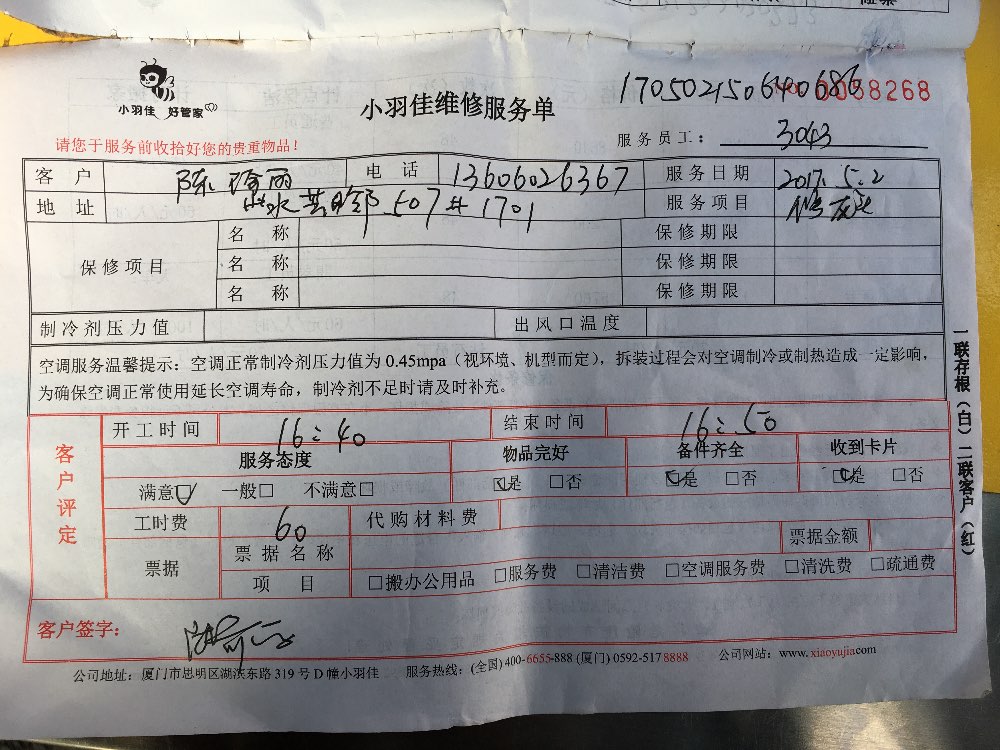 小羽佳 好管家
小羽佳维修服务单
170502150640686
0068268
请您于服务前收拾好您的贵重物品！
服务员工： 3043
客户 陈 丽 电话 13606026367 服务日期 2017. 5. 2
地址 507# 1701 服务项目 修
保修项目 名称 保修期限
名称 保修期限
名称 保修期限
制冷剂压力值 出风口温度
空调服务温馨提示：空调正常制冷剂压力值为 0.45mpa（视环境、机型而定），拆装过程会对空调制冷或制热造成一定影响，
为确保空调正常使用延长空调寿命，制冷剂不足时请及时补充。
客户评定
开工时间 16：40 结束时间 16：50
服务态度 物品完好 备件齐全 收到卡片
满意☑ 一般□ 不满意□ ☑是 □否 ☑是 □否 ☑是 □否
工时费 60 代购材料费
票据 票据名称 票据金额
项目 □搬办公用品 □服务费 □清洁费 □空调服务费 □清洗费 □疏通费
客户签字：
公司地址：厦门市思明区湖滨东路 319 号 D 幢小羽佳 服务热线：(全国) 400-6655-888 (厦门) 0592-517 8888 公司网站：www.xiaoyujia.com
一联存根（白）二联客户（红）